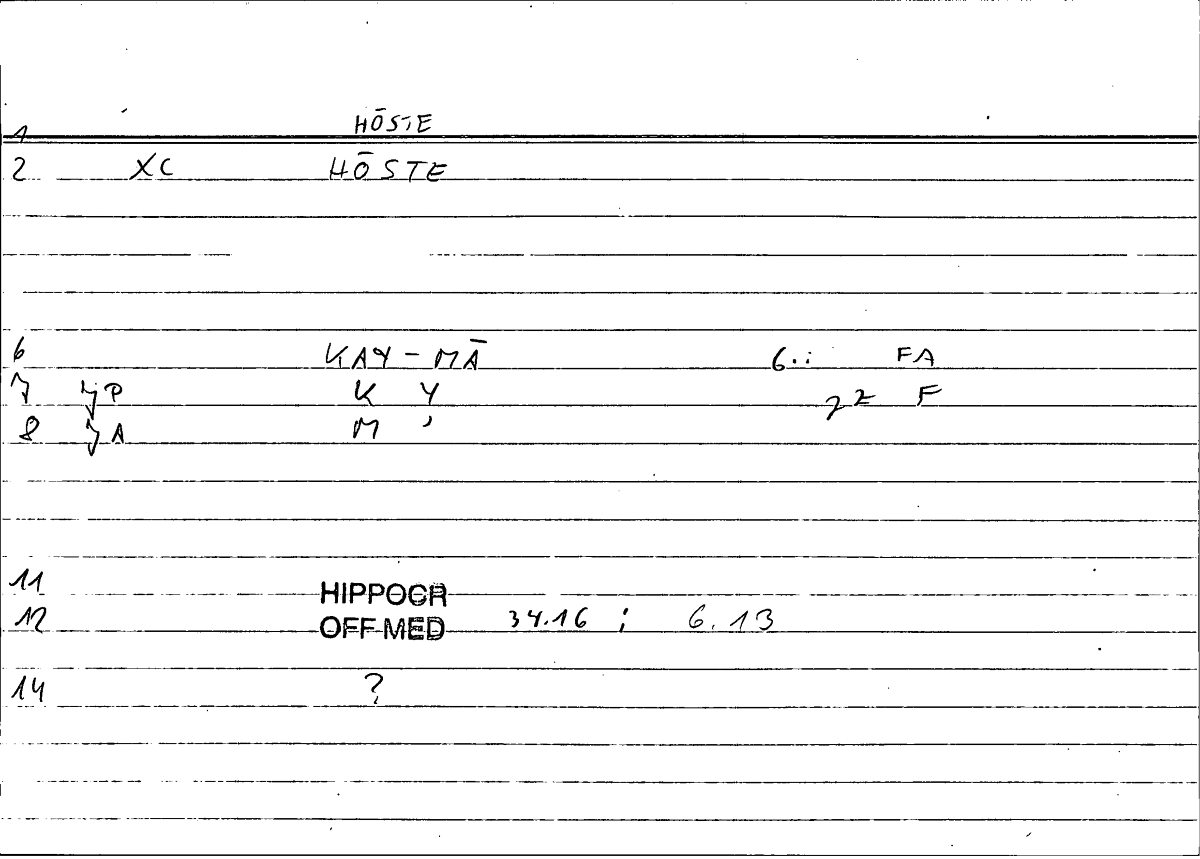 1 HŌSTE
2 XC HŌSTE
6 KAY-MĀ 6.: FA
7 K Y F
8 M ,
11 HIPPOCR
12 OFF MED 34.16 ; 6.13
14 ?